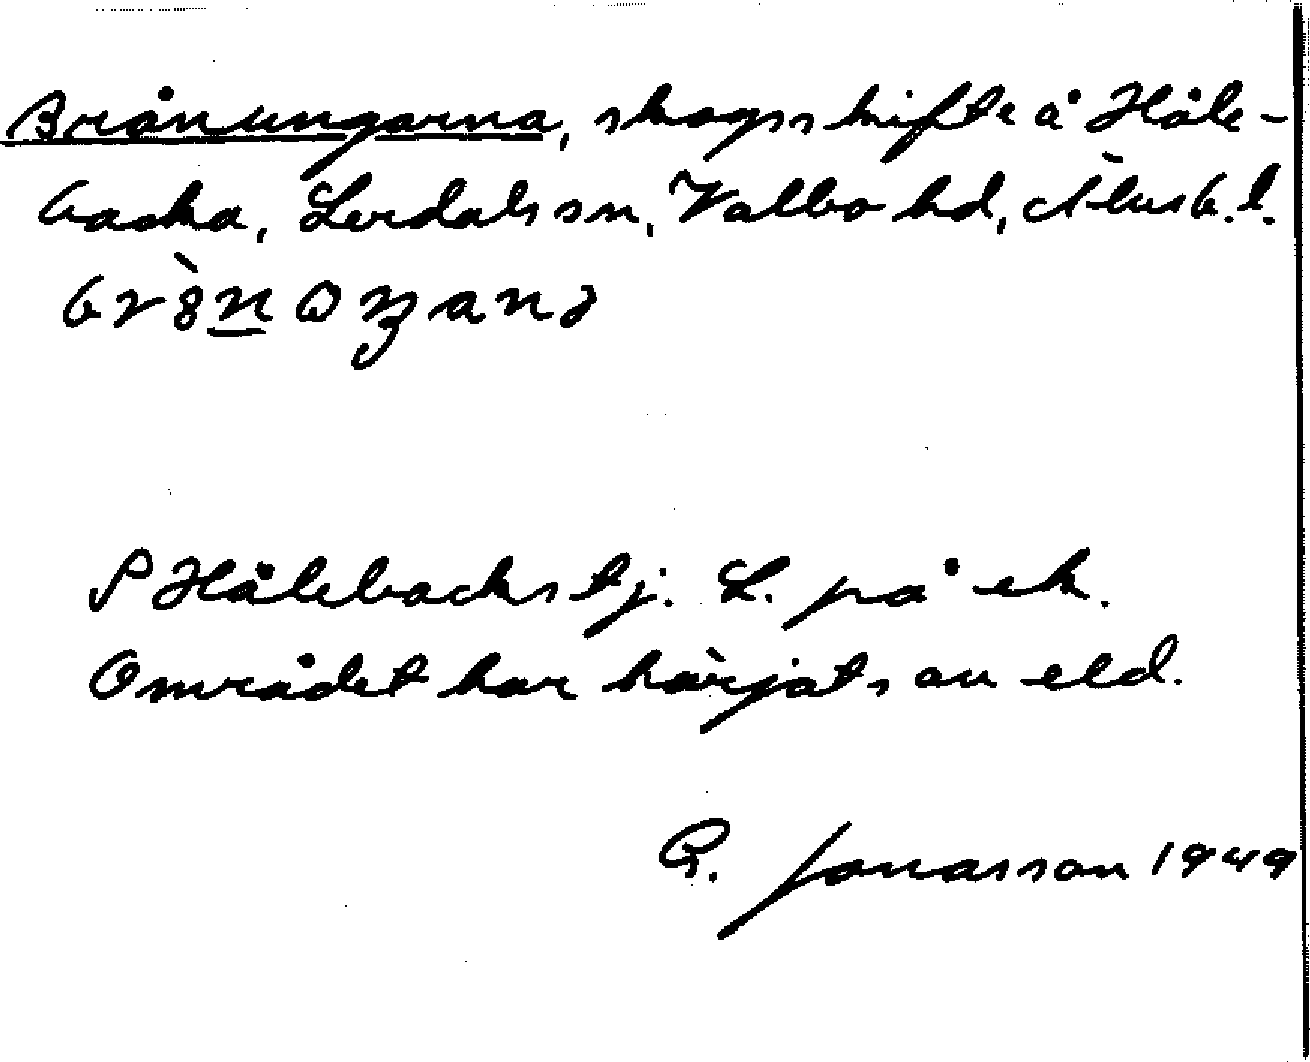 Brånungarna, skogsskifte å Håle-
backa, Lerdals sn, Valbo hd, Älvsb. l.
S Hålebackstj. L. på ek.
Området har härjats av eld.
G. Jonasson 1949